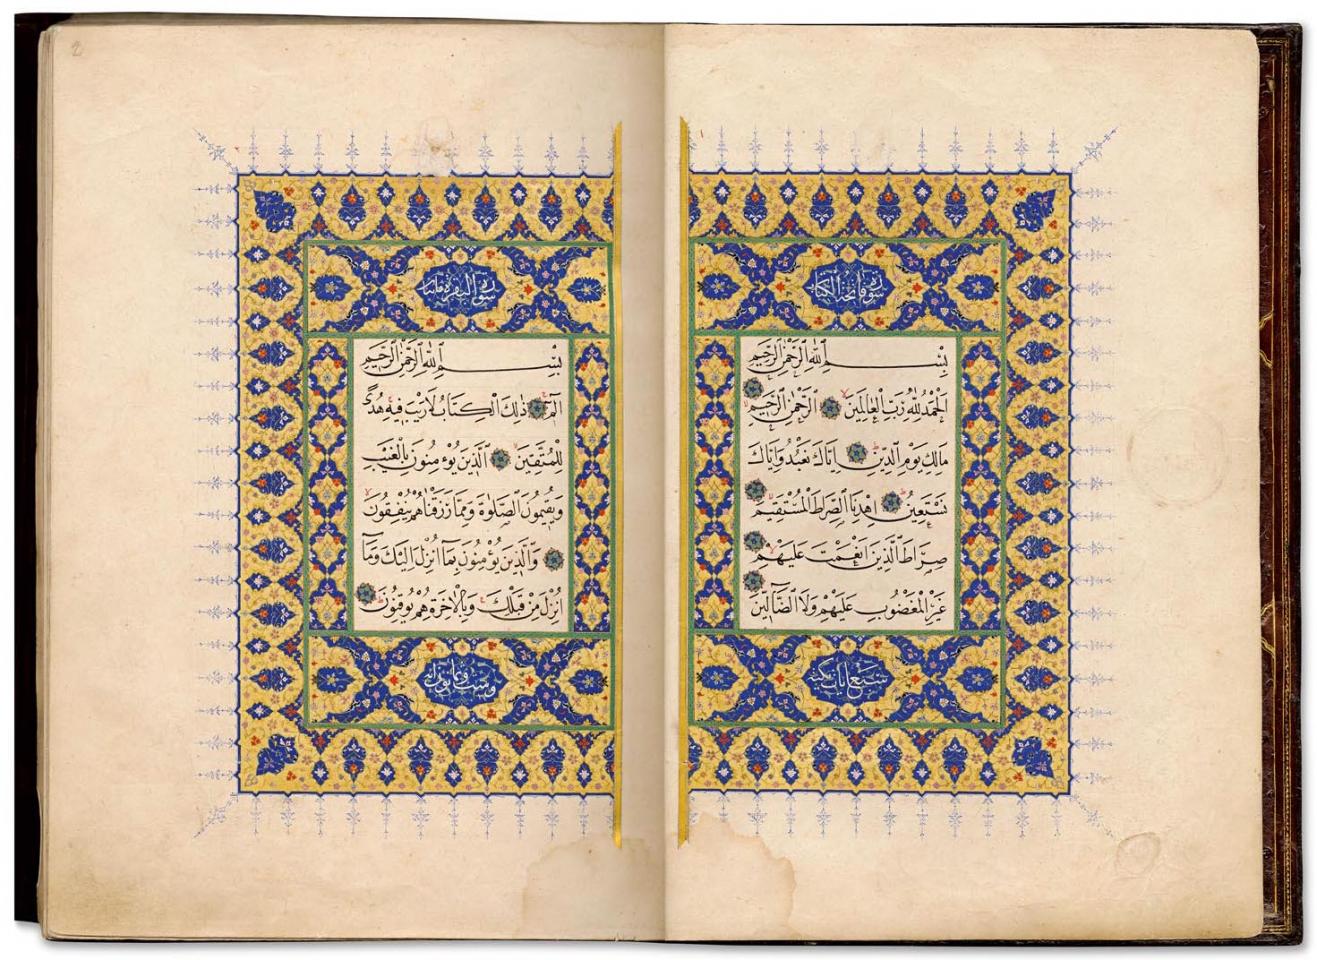 سورة فاتحة الكتاب
بِسْمِ اللهِ الرَّحْمٰنِ الرَّحِيمِ
اَلْحَمْدُ لِلّٰهِ رَبِّ الْعَالَمِينَ الرَّحْمٰنِ الرَّحِيمِ
مَالِكِ يَوْمِ الدِّينِ اِيَّاكَ نَعْبُدُ وَاِيَّاكَ
نَسْتَعِينُ اِهْدِنَا الصِّرَاطَ الْمُسْتَقِيمَ
صِرَاطَ الَّذِينَ اَنْعَمْتَ عَلَيْهِمْ
غَيْرِ الْمَغْضُوبِ عَلَيْهِمْ وَلَا الضَّالِّينَ
سبع آيات مكية
سورة البقرة مائتا
بِسْمِ اللهِ الرَّحْمٰنِ الرَّحِيمِ
الٓمٓ ذٰلِكَ الْكِتَابُ لَا رَيْبَ فِيهِ هُدًى
لِلْمُتَّقِينَ اَلَّذِينَ يُؤْمِنُونَ بِالْغَيْبِ
وَيُقِيمُونَ الصَّلٰوةَ وَمِمَّا رَزَقْنَاهُمْ يُنْفِقُونَ
وَالَّذِينَ يُؤْمِنُونَ بِمَا اُنْزِلَ اِلَيْكَ وَمَا
اُنْزِلَ مِنْ قَبْلِكَ وَبِالْاٰخِرَةِ هُمْ يُوقِنُونَ
وست وثمانون آية
2